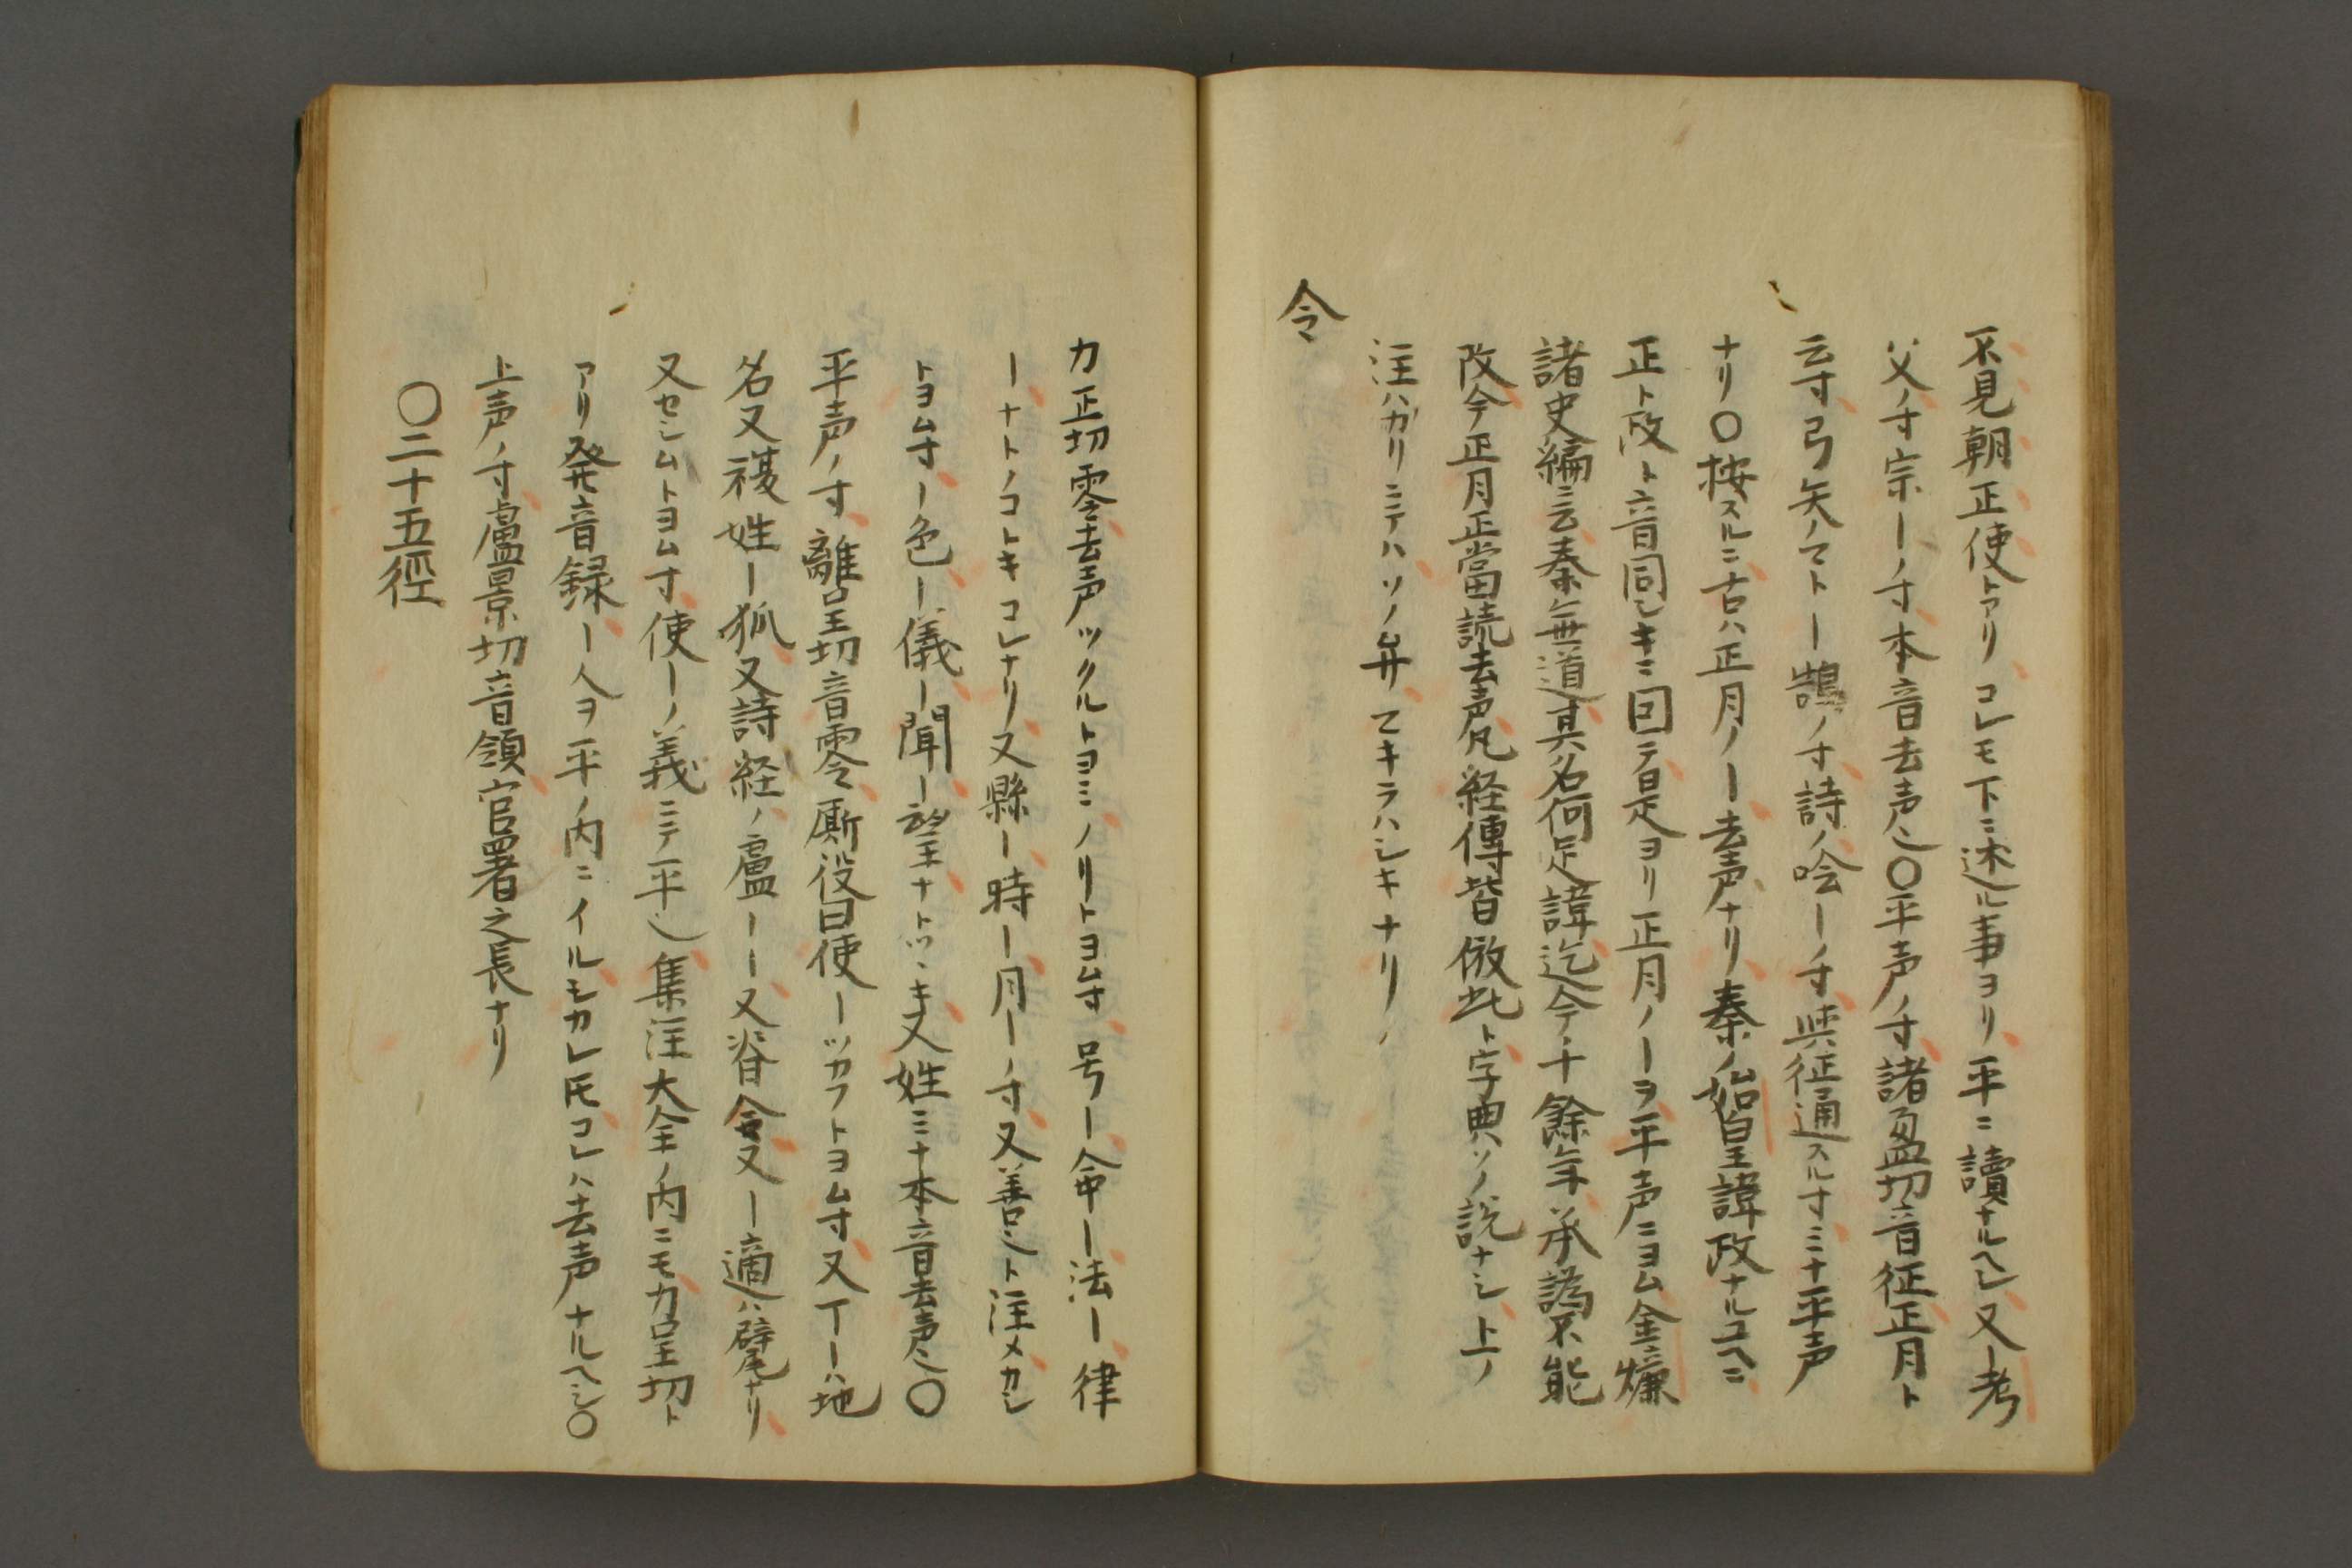 不見朝正使トアリコレモ下ニ述ル事ヨリ平ニ讀ナルヘシ又考
父ノ寸宗ーノ寸本音去声也〇平声ノ寸諸盈切音征正月ト
云寸弓矢ノマトー鵠ノ寸詩ノ噲ーノ寸與征通スル寸ミナ平声
ナリ〇按スルニ古ハ正月ノー去声ナリ秦ノ始皇諱政ナルユヘニ
正ト政ト音同シキニ因テ是ヨリ正月ノーヲ平声ニヨム金燫
諸史編ニ云秦無道其名何足諱迄今千餘年承譌不能
改今正月正當読去声凡経傳皆倣此ト字典ソノ説ナシ上ノ
注ハカリニテハソノ弁てキラハシキナリ
令
力正切零去声ツクルトヨミノリトヨム寸号ー命ー法ー律
ーナトノコトキコレナリ又縣ー時ー月ーノ寸又善也ト注メカシ
トヨム寸ー色ー儀ー聞ー望ナトツヽキ又姓ミナ本音去声也〇
平声ノ寸離呈切音零厮役曰使ーツカフトヨム寸又丁ーハ地
名又複姓ー狐又詩経ノ盧ーー又脊令又ー適ハ甓ナリ
又セシムトヨム寸使ーノ義ニテ平也集注大全ノ内ニモ力呈切ト
アリ発音録ー人ヲ平ノ内ニイルシカレ𪜈コレハ去声ナルヘシ〇
上声ノ寸盧景切音領官署之長ナリ
〇二十五徑